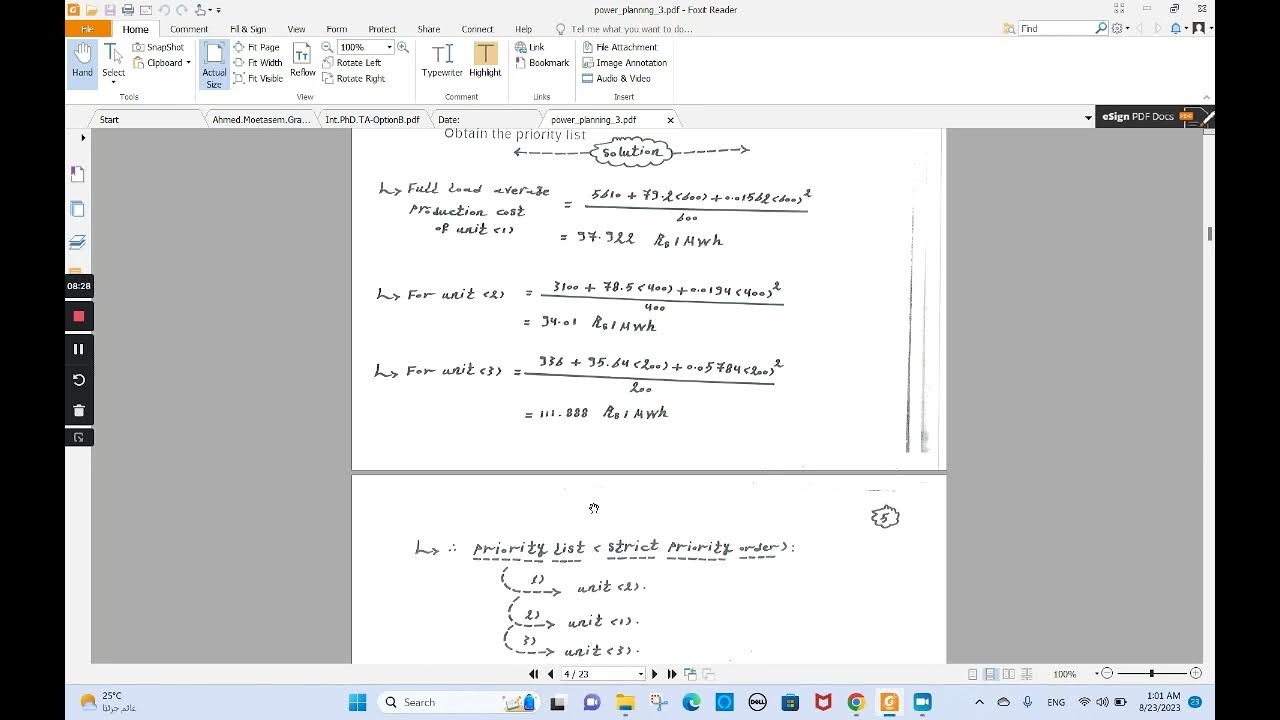 power_planning_3.pdf - Foxit Reader
File Home Comment Fill & Sign View Form Protect Share Connect Help Tell me what you want to do... Find
Hand Select SnapShot Clipboard Actual Size Fit Page Fit Width Fit Visible Reflow 100% Rotate Left Rotate Right Typewriter Highlight Link Bookmark File Attachment Image Annotation Audio & Video
Tools View Comment Links Insert
Start Ahmed.Moetasem.Gra... Int.PhD.TA-OptionB.pdf Date: power_planning_3.pdf eSign PDF Docs
Obtain the priority list
Solution
Full load average production cost of unit <1) = 5610 + 79.2<600) + 0.01562<600)²
600
= 97.922 Rs/MWh
For unit <2) = 3100 + 78.5<400) + 0.0194<400)²
400
= 94.01 Rs/MWh
For unit <3) = 936 + 95.64<200) + 0.05784<200)²
200
= 111.888 Rs/MWh
08:28
5
∴ priority list < strict priority order):
1) unit <2).
2) unit <1).
3) unit <3).
4 / 23 100%
25°C
غائم جزئيًا
Search
ENG
1:01 AM
8/23/2023
23